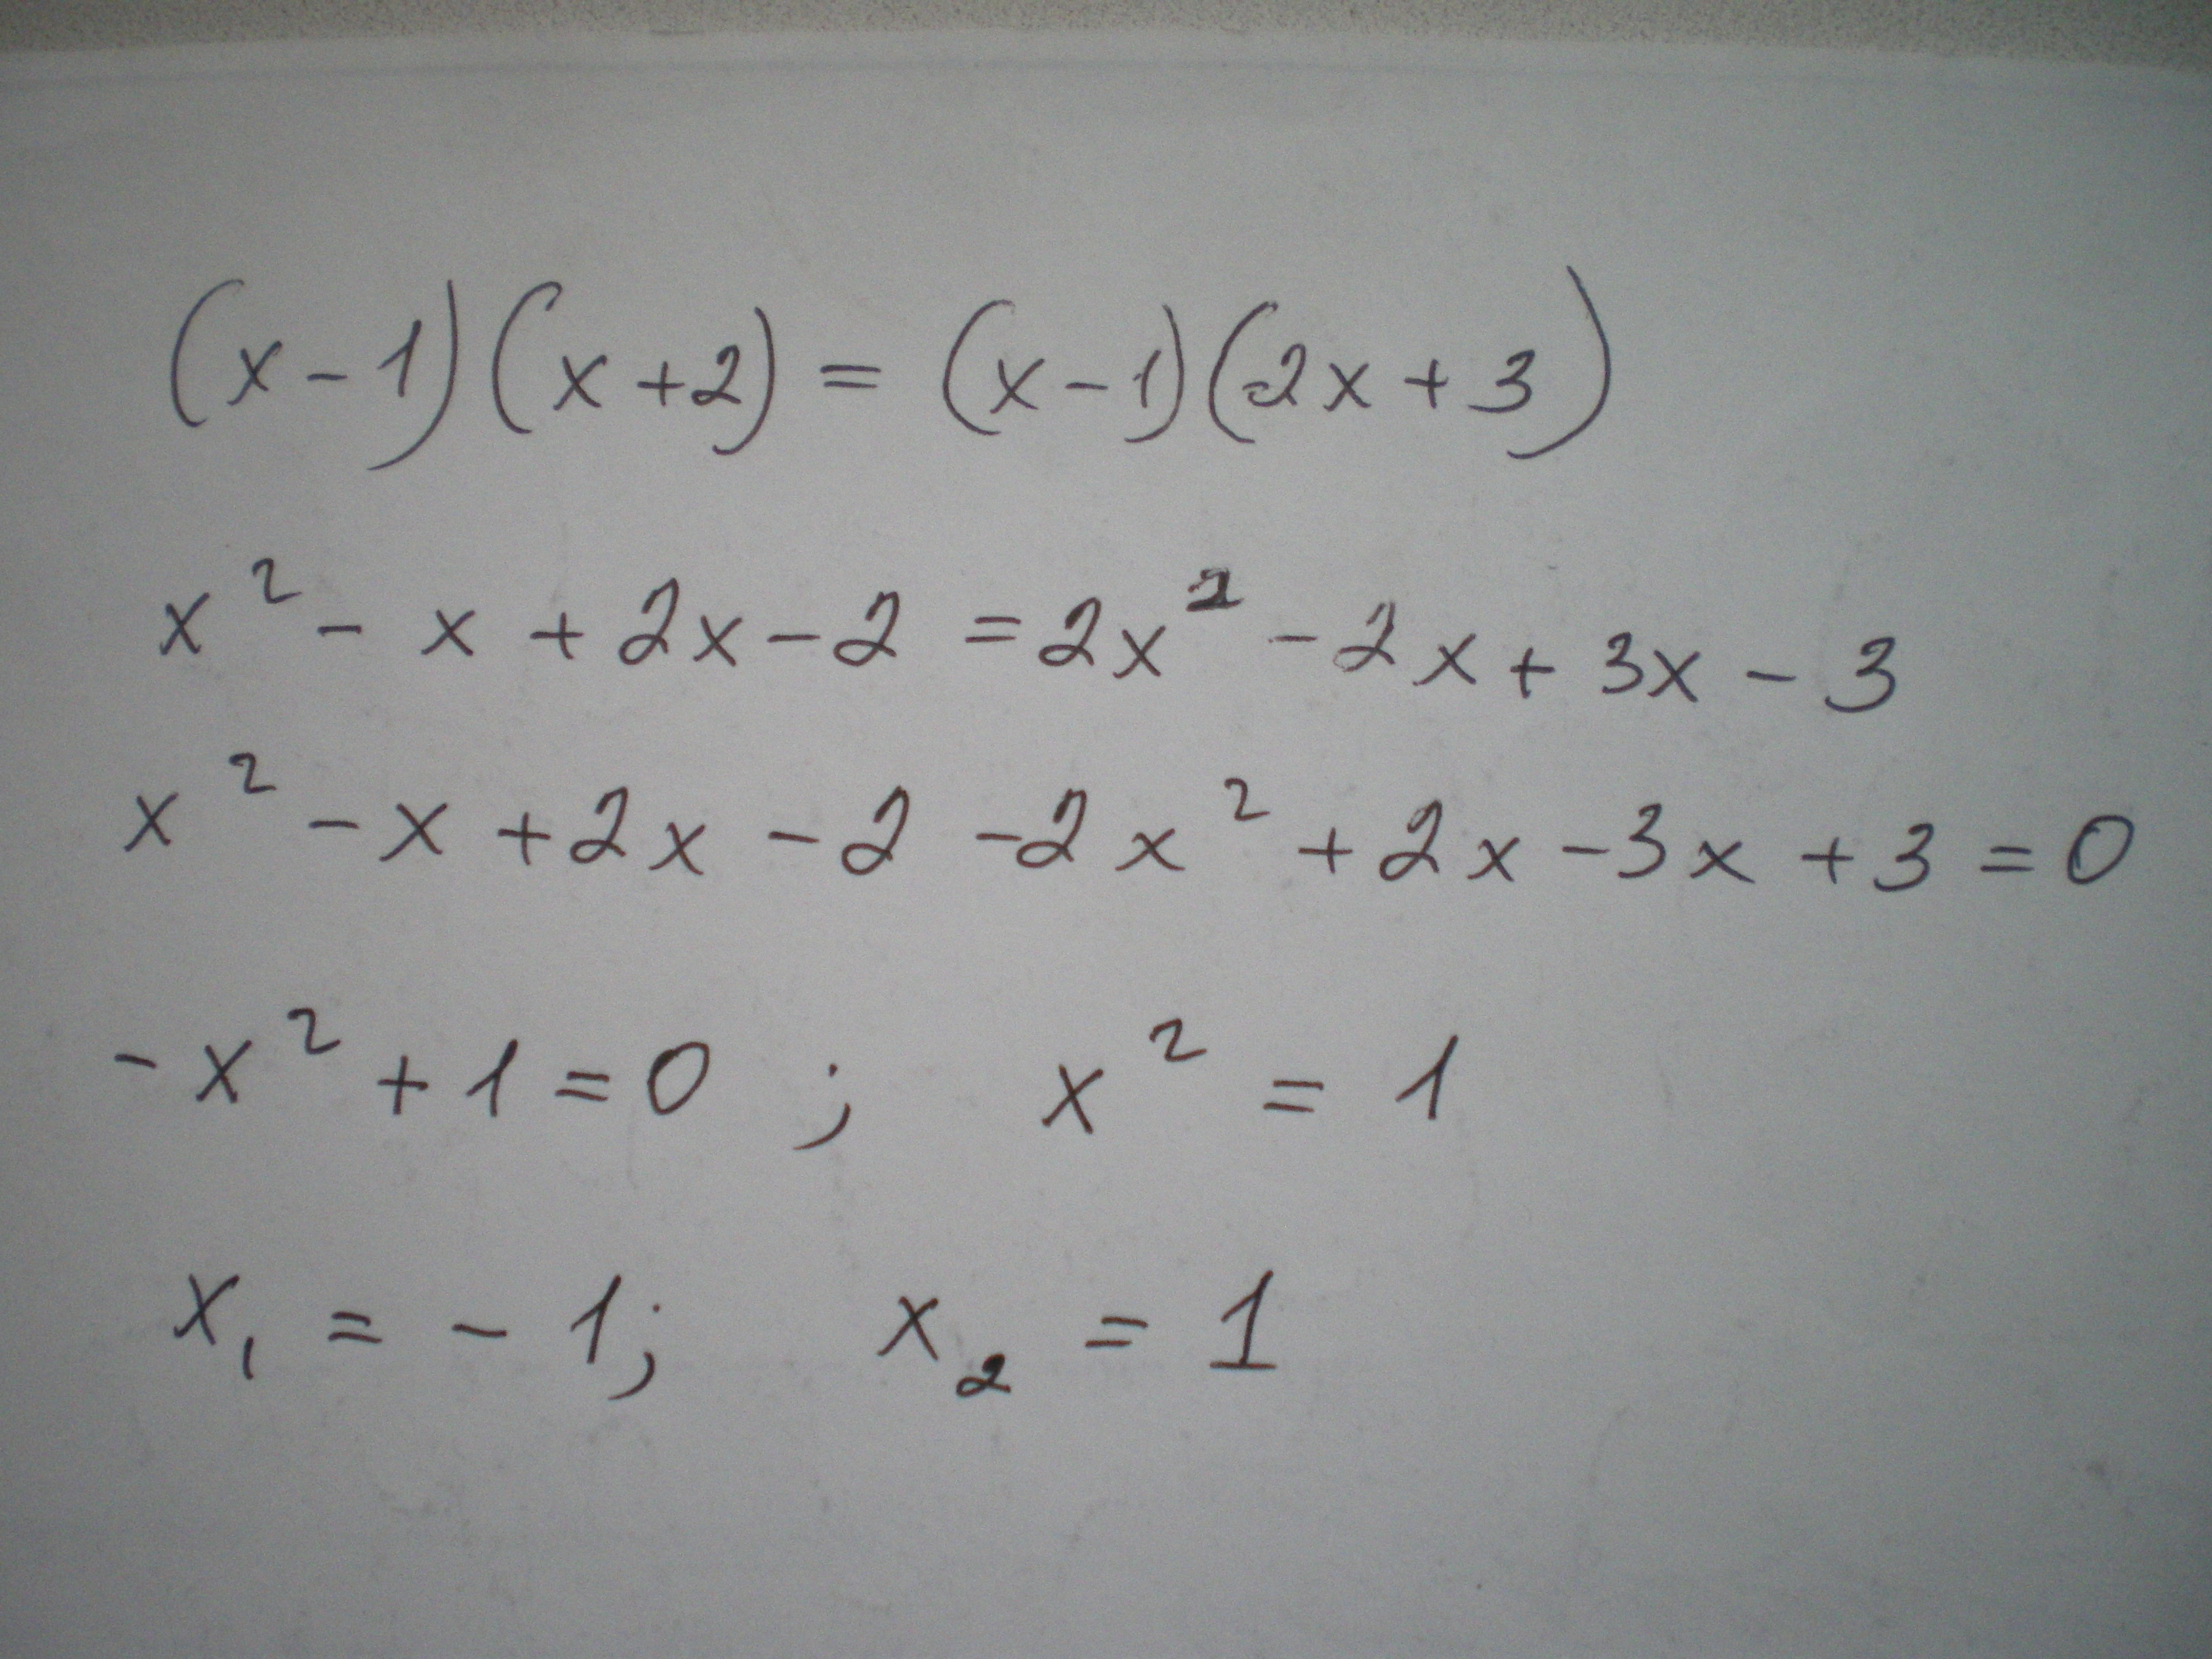 (x-1)(x+2) = (x-1)(2x+3)
x² - x + 2x - 2 = 2x² - 2x + 3x - 3
x² - x + 2x - 2 - 2x² + 2x - 3x + 3 = 0
-x² + 1 = 0 ; x² = 1
x₁ = - 1; x₂ = 1